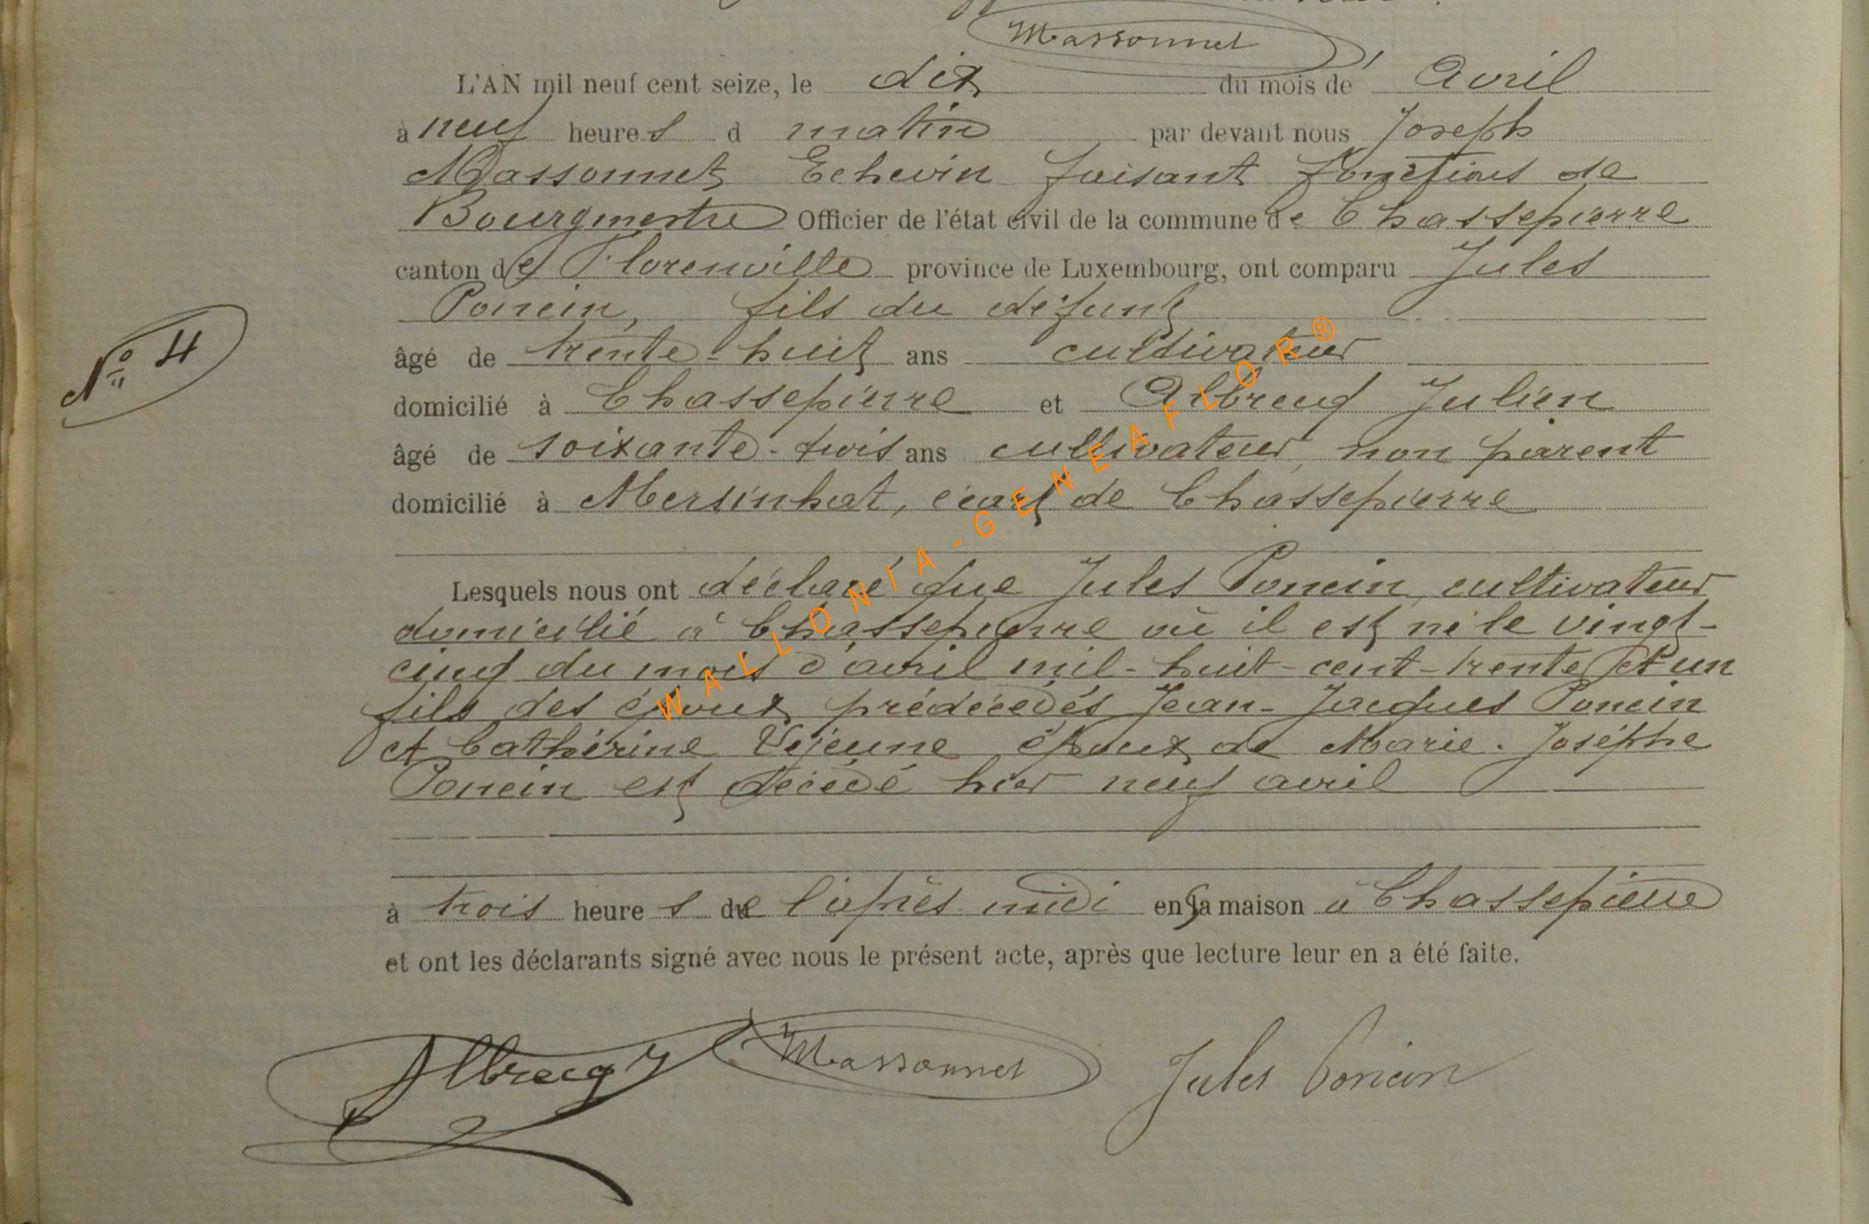 Massonnet
L'AN mil neuf cent seize, le dix du mois de Avril
à neuf heures d matin par devant nous Joseph
Massonnet Echevin faisant fonctions de
Bourgmestre Officier de l'état civil de la commune de Chassepierre
canton de Florenville province de Luxembourg, ont comparu Jules
Poncin, fils du défunt
âgé de trente-huit ans cultivateur
N° 4
domicilié à Chassepierre et Albrecq Julien
âgé de soixante-trois ans cultivateur, non parent
domicilié à Mersinhat, écart de Chassepierre
Lesquels nous ont déclaré que Jules Poncin, cultivateur
domicilié à Chassepierre où il est né le vingt-
cinq du mois d'avril mil-huit-cent-trente et un
fils des époux prédécédés Jean-Jacques Poncin
et Catherine Lejeune époux de Marie-Josèphe
Poncin est décédé hier neuf avril
à trois heures de l'après midi en sa maison à Chassepierre
et ont les déclarants signé avec nous le présent acte, après que lecture leur en a été faite.
Albrecq J Massonnet Jules Poncin
WALLONIA-GENEAFLOR®